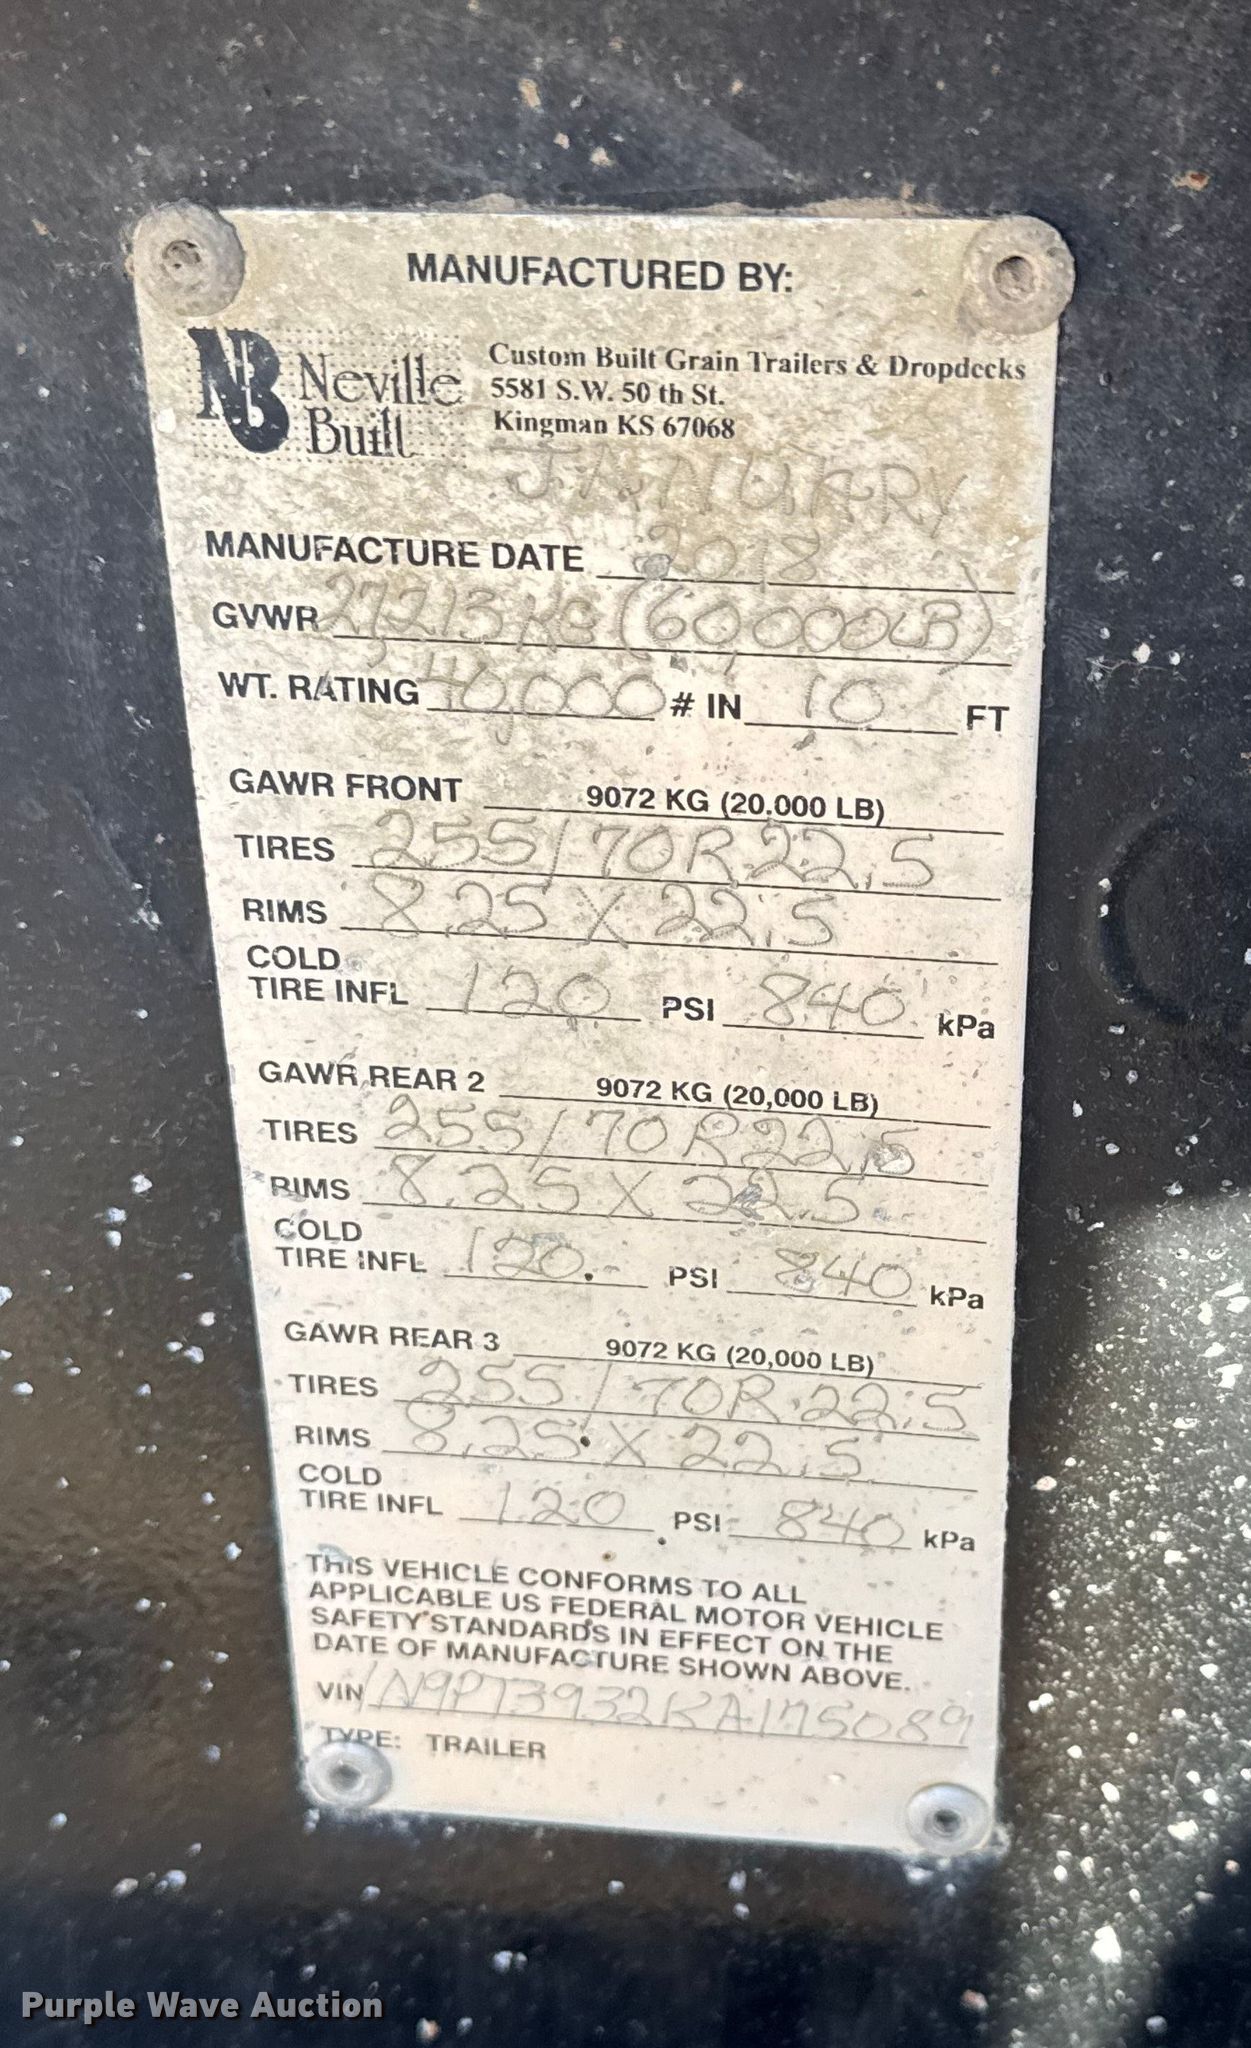 MANUFACTURED BY:
NB Neville Built
Custom Built Grain Trailers & Dropdecks
5581 S.W. 50 th St.
Kingman KS 67068
JANUARY
MANUFACTURE DATE 2018
GVWR 27213 KG (60,000 LB)
WT. RATING 40,000 # IN 10 FT
GAWR FRONT 9072 KG (20.000 LB)
TIRES 255/70R 22.5
RIMS 8.25 X 22.5
COLD
TIRE INFL 120 PSI 840 kPa
GAWR REAR 2 9072 KG (20,000 LB)
TIRES 255/70R22.5
RIMS 8.25 X 22.5
COLD
TIRE INFL 120 PSI 840 kPa
GAWR REAR 3 9072 KG (20,000 LB)
TIRES 255/70R 22.5
RIMS 8.25 X 22.5
COLD
TIRE INFL 120 PSI 840 kPa
THIS VEHICLE CONFORMS TO ALL
APPLICABLE US FEDERAL MOTOR VEHICLE
SAFETY STANDARDS IN EFFECT ON THE
DATE OF MANUFACTURE SHOWN ABOVE.
VIN
TYPE: TRAILER
Purple Wave Auction